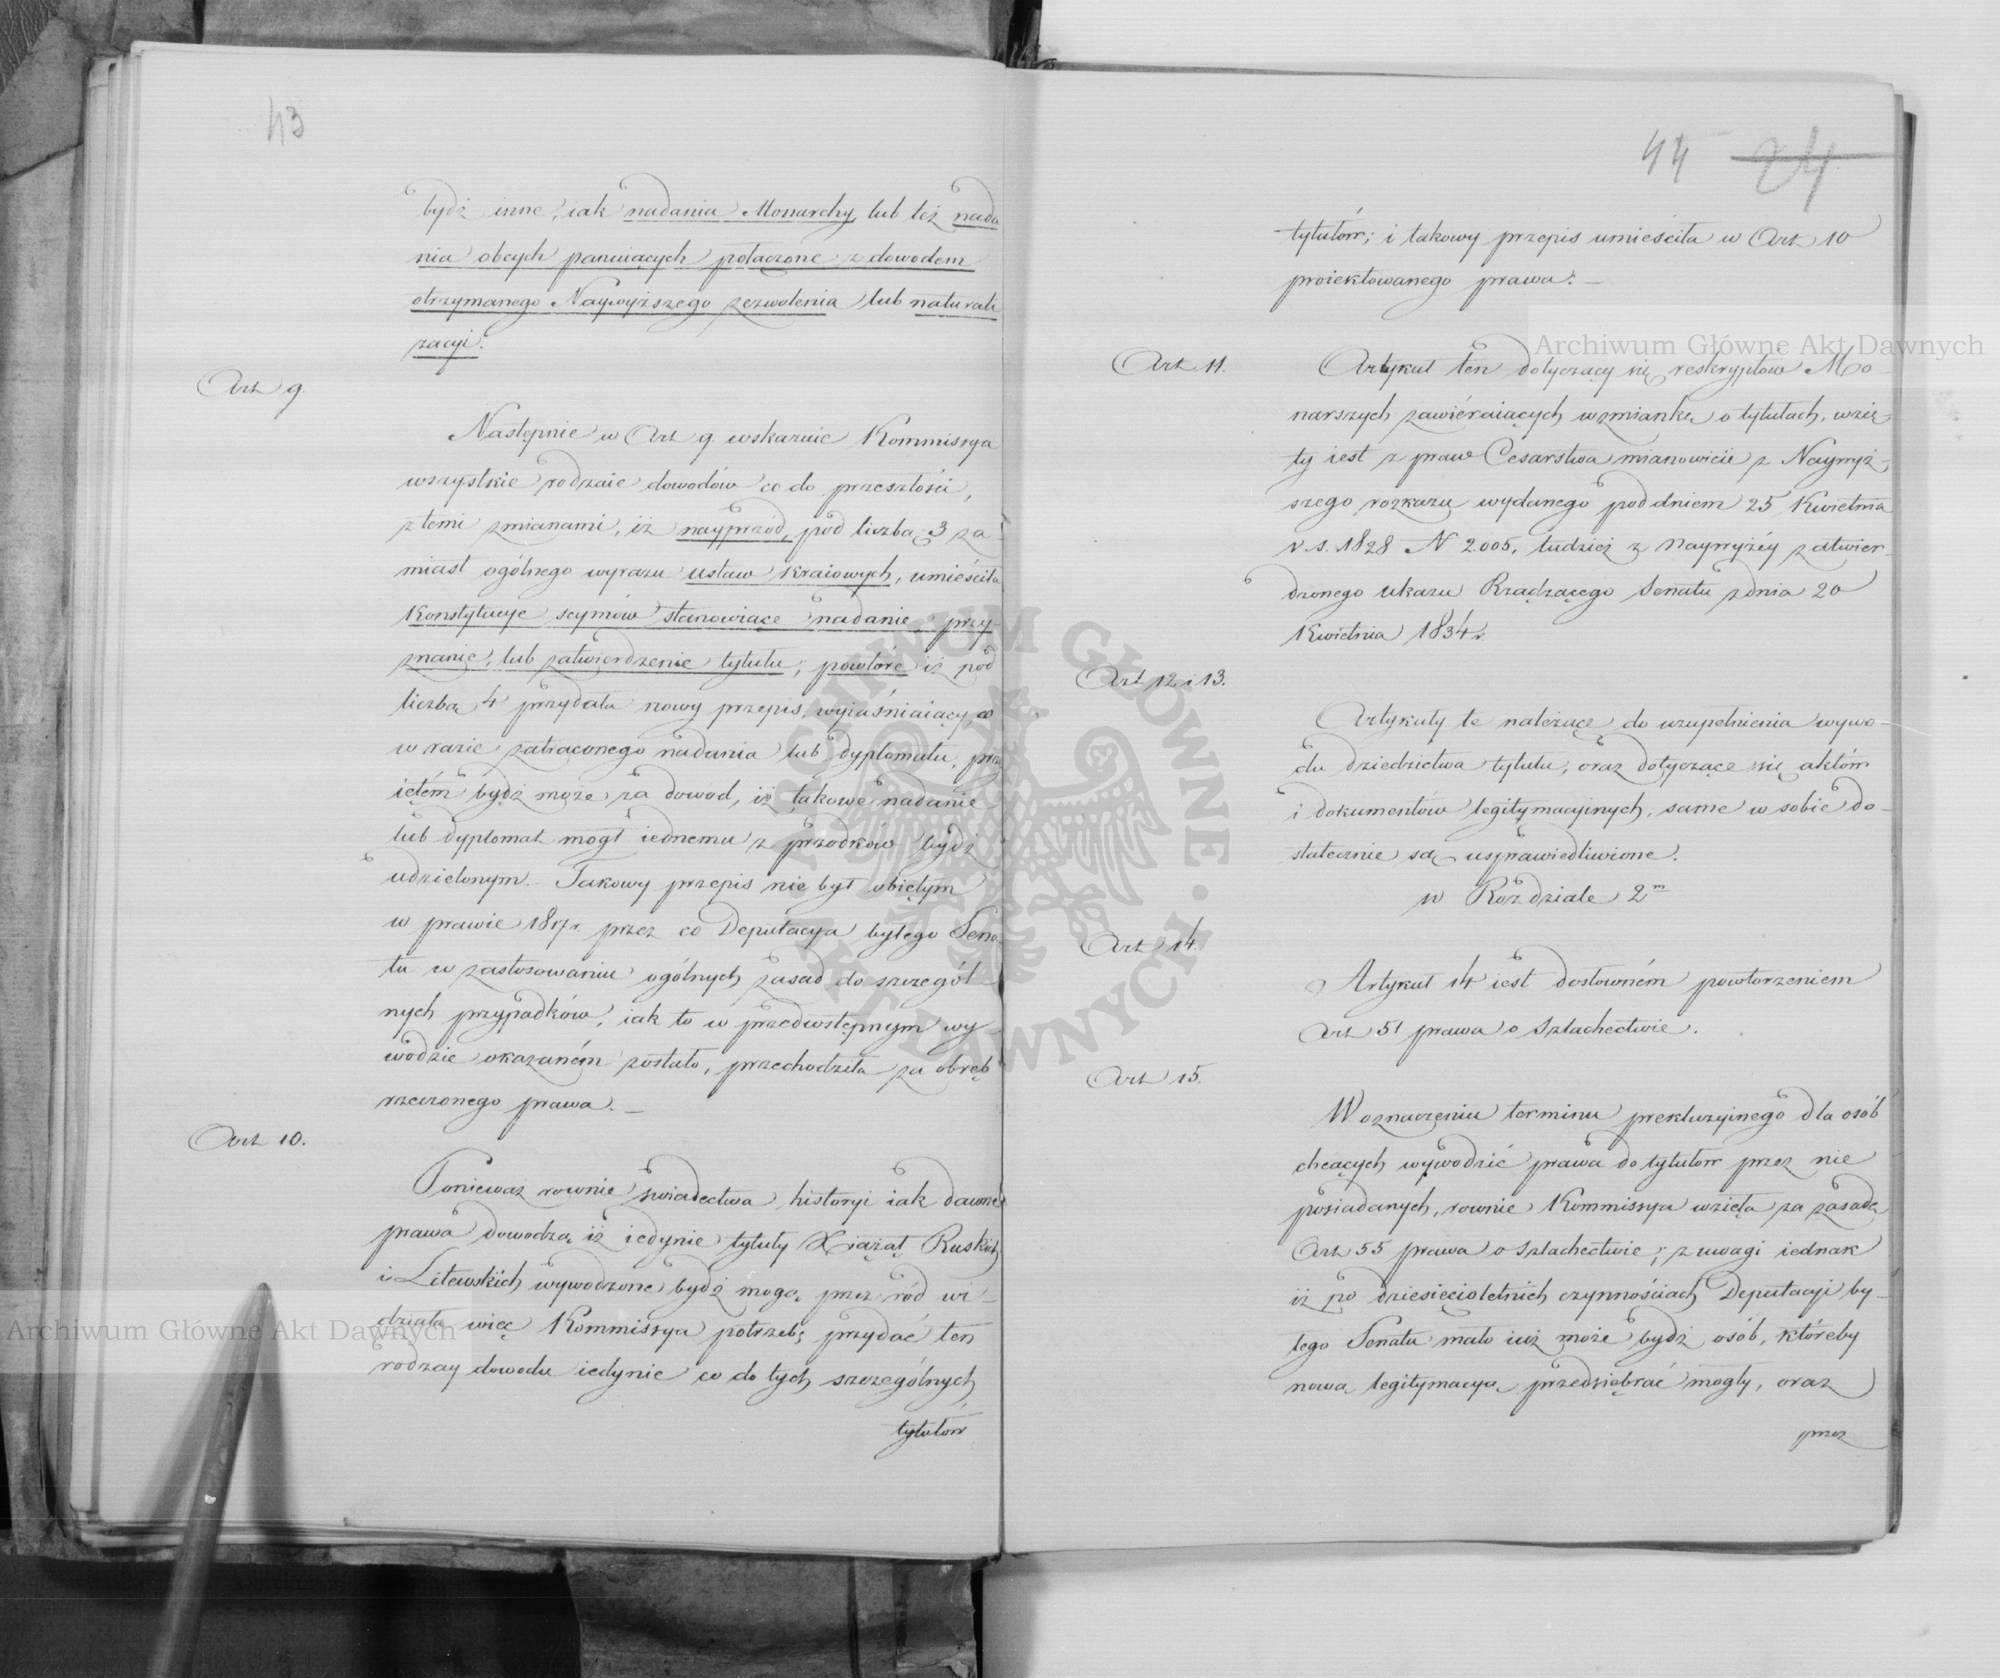 43
bydź inne, iak nadania Monarchy, lub też nada
nia obcych panuiących połączone z dowodem
otrzymanego Naywyższego zezwolenia lub naturali
zacyi.
Art 9.
Następnie w Art 9 wskazuie Kommissya
wszystkie rodzaie dowodów co do przeszłości,
z temi zmianami, iż nayprzód, pod liczbą 3 za
miast ogólnego wyrazu ustaw kraiowych, umieściła
Konstytucye seymów stanowiące nadanie, przy-
znanie, lub zatwierdzenie tytułu; powtóre iż pod
liczbą 4 przydała nowy przepis, wyiaśniaiący, co
w razie zatraconego nadania lub dyplomatu, przy
iętém bydź może za dowod, iż takowe nadanie
lub dyplomat mogł iednemu z przodków bydź
udzielonym. Takowy przepis nie był obiętym
w prawie 1817 r. przez co Deputacya byłego Sena
tu w zastosowaniu ogólnych zasad do szczegól
nych przypadków, iak to w przedwstępnym wy-
wodzie okazaném zostało, przechodziła za obręb
rzeczonego prawa. —
Art 10.
Ponieważ rownie świadectwa historyi iak dawne
prawa dowodzą iż iedynie tytuły Xiążąt Ruskich
i Litewskich wywodzone bydź mogą przez ród wi-
działa więc Kommissya potrzebę przydać ten
rodzay dowodu iedynie co do tych szczególnych
tytułów
44 24
tytułów; i takowy przepis umieściła w Art 10
proiektowanego prawa. —
Art 11.
Artykuł ten dotyczący się reskryptów Mo-
narszych zawiéraiących wzmiankę o tytułach, wzię-
ty iest z praw Cesarstwa mianowicie z Naywyż-
szego rozkazu wydanego pod dniem 25 Kwietnia
v. s. 1828 N 2.005, tudzież z Naywyżéy zatwier-
dzonego ukazu Rządzącego Senatu z dnia 20
Kwietnia 1834 r.
Art 12 i 13.
Artykuły te należące do uzupełnienia wywo-
du dziedzictwa tytułu, oraz dotyczące się aktów
i dokumentów legitymacyinych, same w sobie do-
statecznie są usprawiedliwione.
w Rozdziale 2m
Art 14.
Artykuł 14 iest dosłowném powtorzeniem
Art 51 prawa o Szlachectwie.
Art 15.
W oznaczeniu terminu prekluzyinego dla osób
chcących wywodzić prawa do tytułów przez nie
posiadanych, rownie Kommissya wzięła za zasadę
Art 55 prawa o Szlachectwie; z uwagi iednak
iż po dziesięcioletnich czynnościach Deputacyi by-
łego Senatu mało iuż może bydź osób, któreby
nową legitymacyą przedsiębrać mogły, oraz
przez
Archiwum Główne Akt Dawnych
Archiwum Główne Akt Dawnych
ARCHIWUM GŁÓWNE · AKT DAWNYCH ·